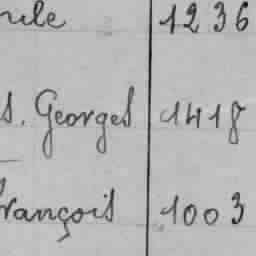 1236
s. Georges 1418
François 1003